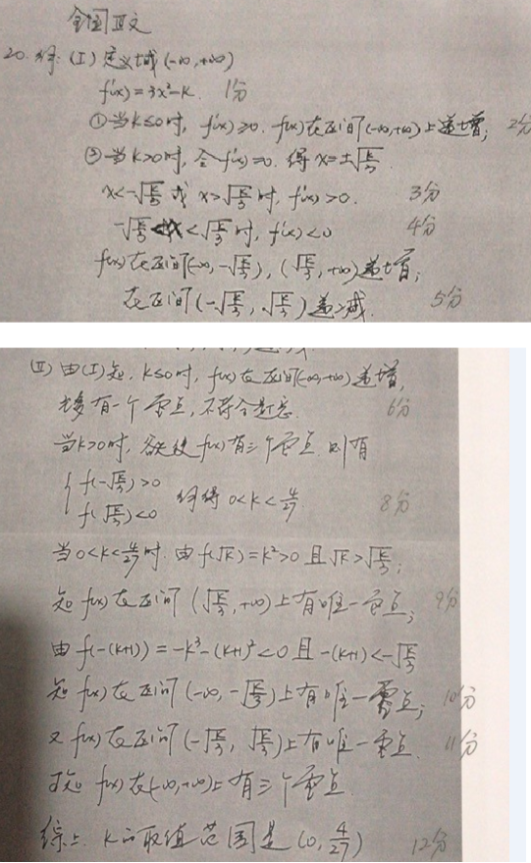 全国Ⅲ文
20. 解: (I) 定义域(-∞,+∞)
f'(x)=3x²-k. 1分
①当k≤0时, f'(x)≥0. f(x)在区间(-∞,+∞)上递增; 2分
②当k>0时, 令f'(x)=0. 得x=±√(k/3)
x<-√(k/3) 或 x>√(k/3) 时, f'(x)>0. 3分
-√(k/3)<x<√(k/3) 时, f'(x)<0 4分
f(x)在区间(-∞,-√(k/3)), (√(k/3),+∞)递增;
在区间(-√(k/3), √(k/3))递减. 5分
(Ⅱ) 由(I)知, k≤0时, f(x)在区间(-∞,+∞)递增,
有一个零点, 不符合题意. 6分
当k>0时, 若使f(x)有三个零点, 则有
{ f(-√(k/3))>0
f(√(k/3))<0 解得 0<k<4/27 8分
当0<k<4/27时. 由f(√k)=k²>0 且√k>√(k/3);
知f(x)在区间(√(k/3),+∞)上有唯一零点; 9分
由f(-(k+1))=-k³-(k+1)²<0 且-(k+1)<-√(k/3)
知f(x)在区间(-∞,-√(k/3))上有唯一零点; 10分
又f(x)在区间(-√(k/3), √(k/3))上有唯一零点. 11分
可知 f(x)在(-∞,+∞)上有三个零点.
综上. k的取值范围是(0, 4/27) 12分